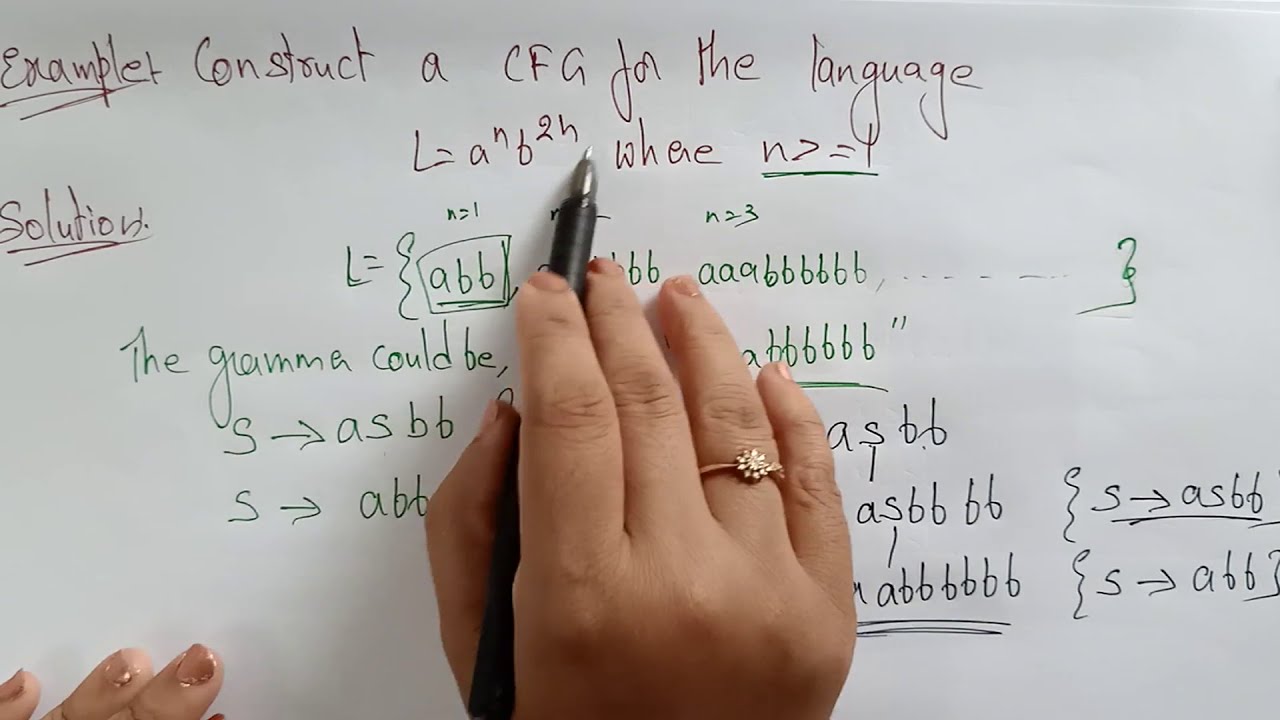 Example Construct a CFG for the language
L=aⁿb²ⁿ where n>=1
Solution.
n=1 n=3
L={abb, bbb, aaabbbbbb, ............ }
The gramma could be, abbbbbb"
S→asbb asbb
S→ abb asbbbb {s→asbb
abbbbbb {s→abb}